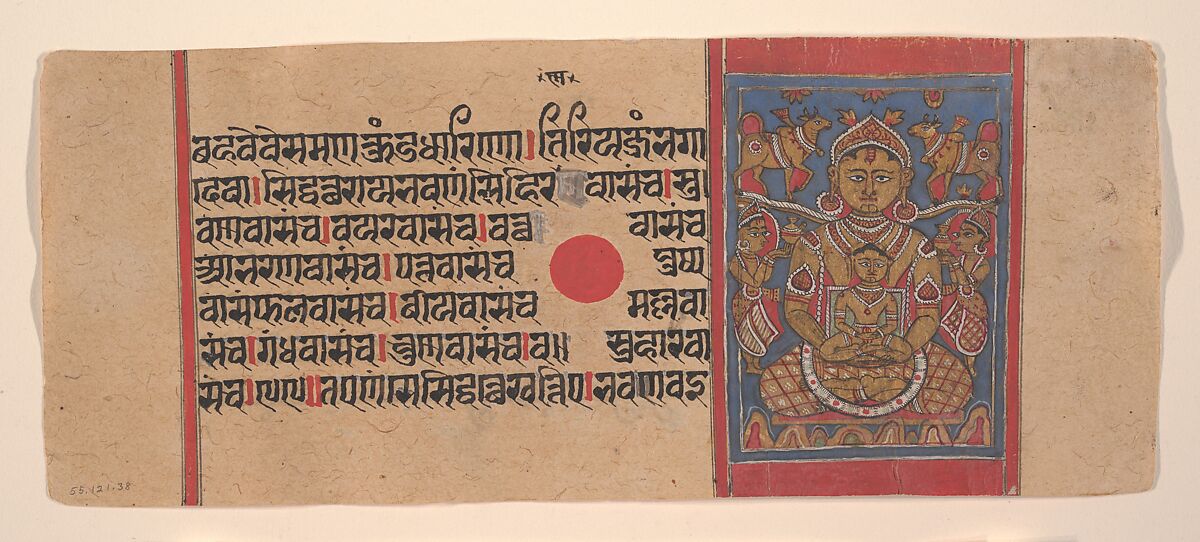 बहवेवेसमणकुंडधारिणो।तिरियजंभगा
देवा।सिद्धत्थरायभवणंसिहिर वासंच।सु
वणवासंच।वयरवासंच।वत्थ वासंच
आभरणवासंच।पत्तवासंच पुप्फ
वासंफलवासंच।बीयवासंच मल्लवा
संच।गंधवासंच।चुणवासंच।व॥ सुहारवा
संच। ॥तएणंसेसिद्धत्थेखत्तिए।भवणवइ
55.121.38